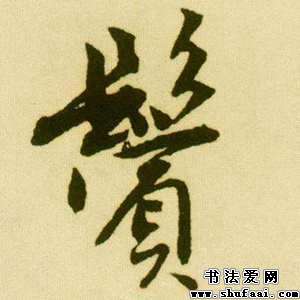 鬢
书法爱网
www.shufaai.com